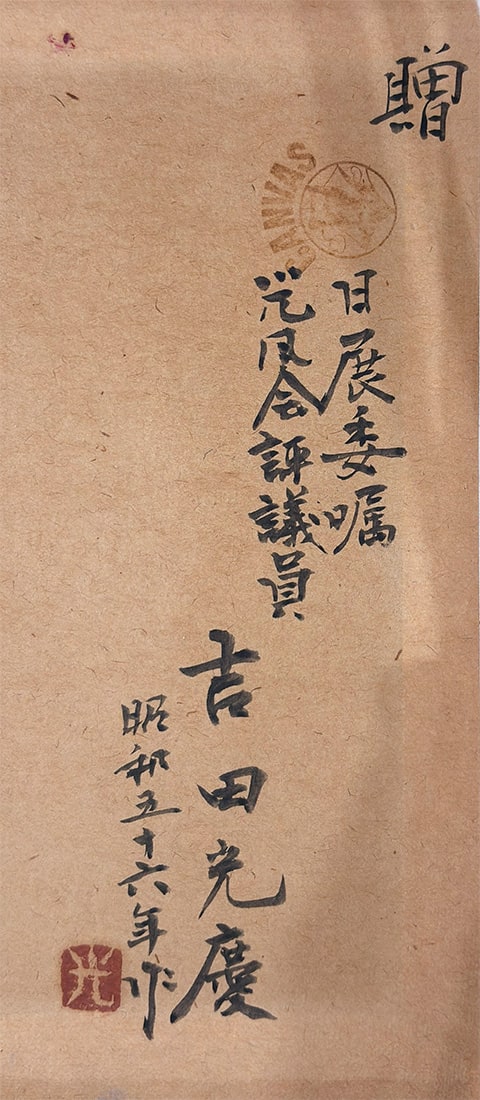 贈
CANVAS
日展委嘱
光風会評議員
吉田光慶
昭和五十六年作
光